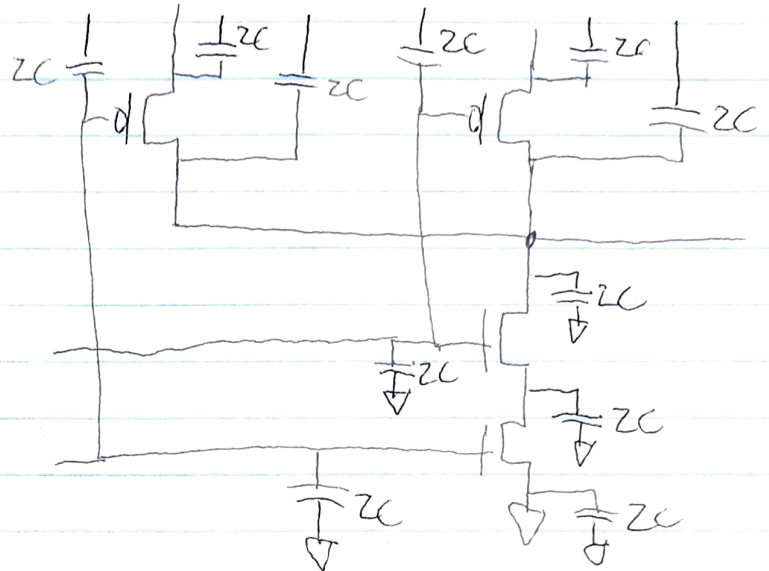 2C 2C 2C 2C 2C 2C
2C
2C
2C
2C
2C